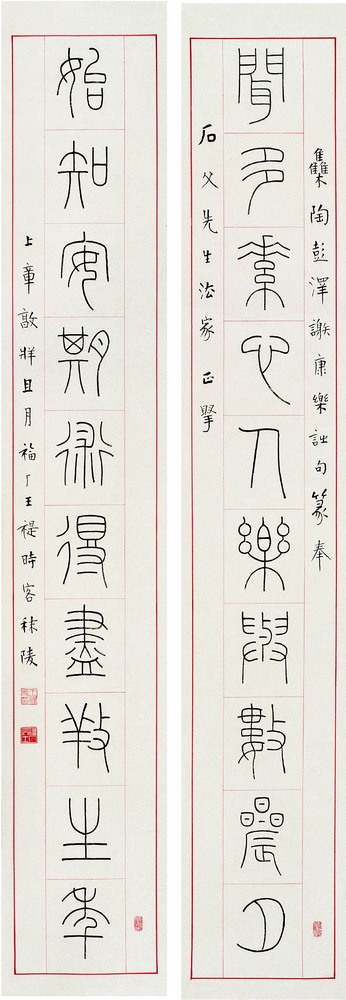 雧陶彭澤謝康樂詩句篆奉
聞多素心人樂與數晨夕
石父先生法家正
始知安期術得盡養生年
上章敦牂且月福厂王禔時客秣陵